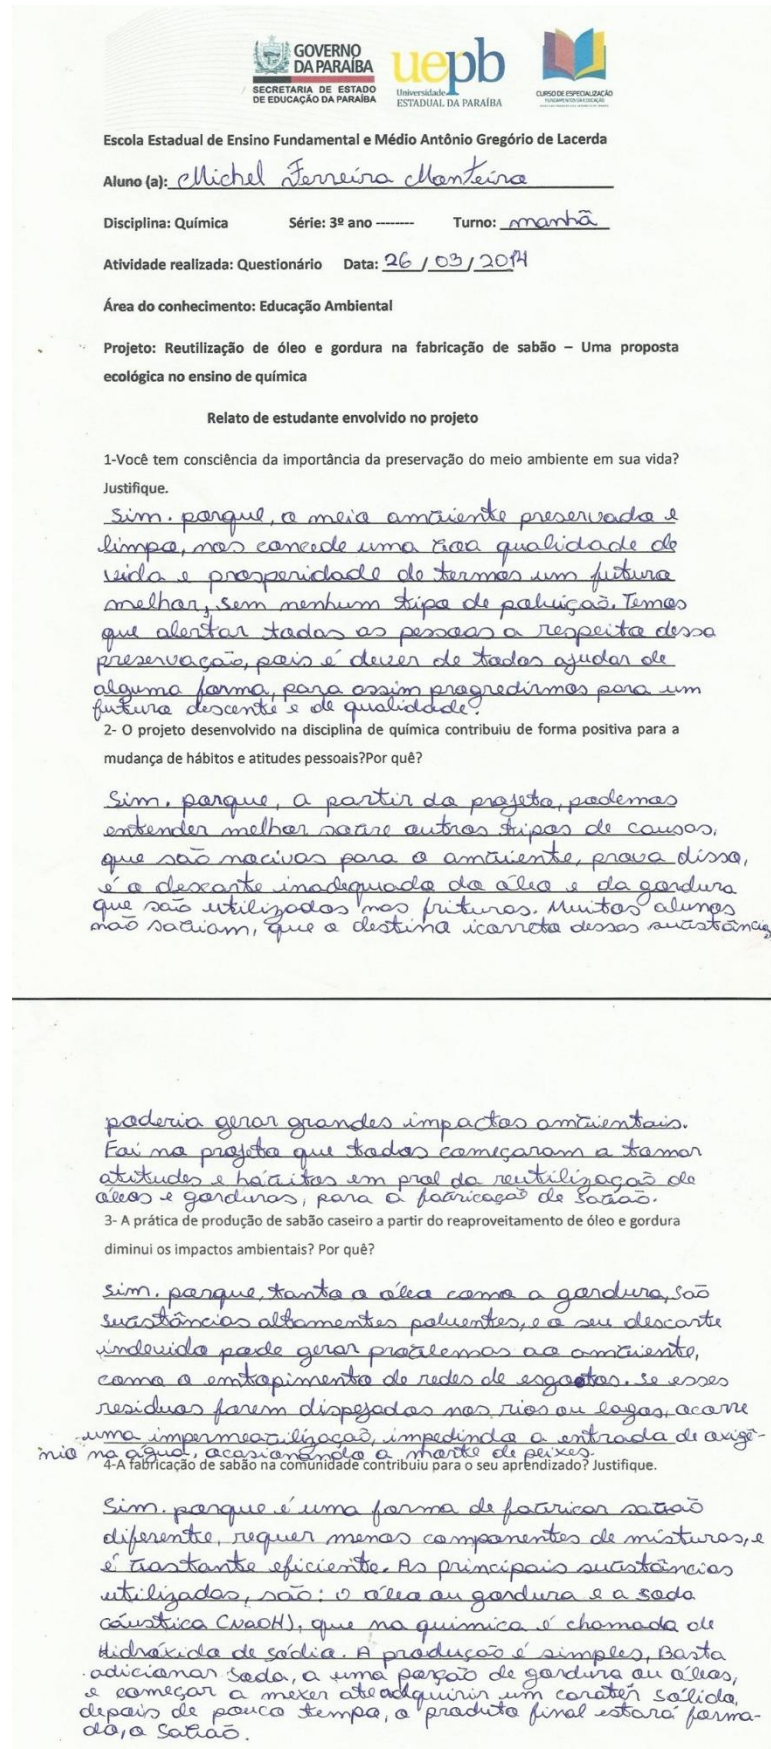 GOVERNO
DA PARAÍBA
SECRETARIA DE ESTADO
DE EDUCAÇÃO DA PARAÍBA
uepb
Universidade
ESTADUAL DA PARAÍBA
CURSO DE ESPECIALIZAÇÃO
Escola Estadual de Ensino Fundamental e Médio Antônio Gregório de Lacerda
Aluno (a): Michel Ferreira Monteiro
Disciplina: Química Série: 3º ano -------- Turno: manhã
Atividade realizada: Questionário Data: 26 / 03 / 2014
Área do conhecimento: Educação Ambiental
Projeto: Reutilização de óleo e gordura na fabricação de sabão – Uma proposta
ecológica no ensino de química
Relato de estudante envolvido no projeto
1-Você tem consciência da importância da preservação do meio ambiente em sua vida?
Justifique.
Sim. porque, o meio ambiente preservado e
limpo, nos concede uma boa qualidade de
vida e prosperidade de termos um futuro
melhor, sem nenhum tipo de poluição. Temos
que alertar todas as pessoas a respeito dessa
preservação, pois é dever de todos ajudar de
alguma forma, para assim progredirmos para um
futuro descente e de qualidade.
2- O projeto desenvolvido na disciplina de química contribuiu de forma positiva para a
mudança de hábitos e atitudes pessoais?Por quê?
Sim. porque, a partir do projeto, podemos
entender melhor sobre outros tipos de causas,
que são nocivas para o ambiente, prova disso,
é o descarte inadequado do óleo e da gordura
que são utilizados nas frituras. Muitos alunos
não sabiam, que o destino icorreto dessas substâncias
poderia gerar grandes impactos ambientais.
Foi no projeto que todos começaram a tomar
atitudes e hábitos em prol da reutilização de
óleos e gorduras, para a fabricação de sabão.
3- A prática de produção de sabão caseiro a partir do reaproveitamento de óleo e gordura
diminui os impactos ambientais? Por quê?
Sim. porque, tanto o óleo como a gordura, são
substâncias altamentes poluentes, e o seu descarte
indevido pode gerar problemas ao ambiente,
como o emtupimento de redes de esgotos. se esses
residuos forem dispejados nos rios ou lagos, ocorre
uma impermeabilização, impedindo a entrada de oxigê-
nio na água, ocasionando a morte de peixes.
4-A fabricação de sabão na comunidade contribuiu para o seu aprendizado? Justifique.
Sim. porque é uma forma de fabricar sabão
diferente, requer menos componentes de misturas, e
é bastante eficiente. As principais substâncias
utilizadas, são: o óleo ou gordura e a soda
cáustica (NaOH), que na quimica é chamada de
Hidróxido de sódio. A produção é simples, Basta
adicionar soda, a uma porção de gordura ou óleos,
e começar a mexer ate adquirir um caratér sólido,
depois de pouco tempo, o produto final estará forma-
do, o sabão.